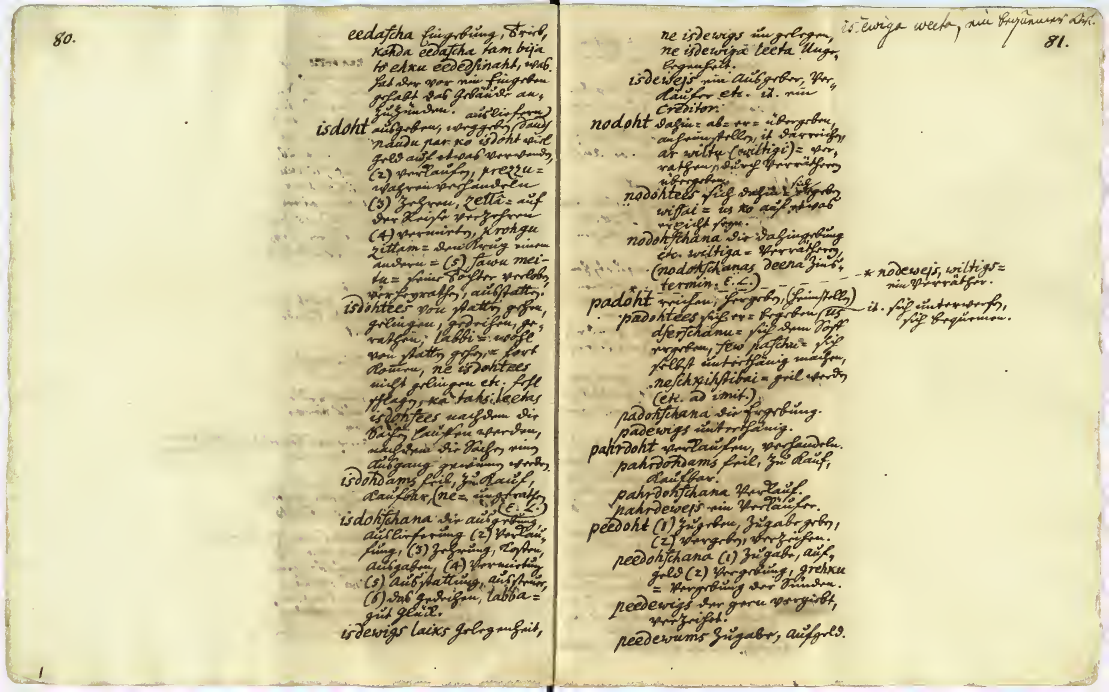 80.
eedascha Eingebung, Trieb,
kahda eedascha tam bija
to ehku eededsinaht, was
hat der vor ein Eingeben
gehabt das Gebäude an-
zuzünden. ausliefern)
isdoht ausgeben, weggeben (daud
naudu par ko isdoht viel
Geld auf etwas verwenden
(2) verkaufen, prezzu =
wahren verhandeln
(3) Zehren, zetti = auf
der Reise verzehren
(4) vermieten, krohgu
zittam = den Krug einem
andern = (5) sawu mei-
tu = seine Tochter verloben,
verheyrathen, ausstatten.
isdohtees von statten gehen,
gelingen, gedeihen, ge-
rathen, labbi = wohl
von statten gehen, = fort
kommen, ne isdohtees
nicht gelingen etc. fehl
schlagen, ka tahs leetas
isdohsees nachdem die
Sachen lauffen werden,
nachdem die Sachen einen
Ausgang gewinnen werden
isdohdams feil, zu Kauf,
Kaufbahr, (ne = ungerathen
(E. L.)
isdohschana die ausgebung,
Auslieferung (2) Verkau-
fung, (3) Zehrung, Kosten,
Ausgaben, (4) Vermietung
(5) Ausstattung, Aussteuer,
(6) das gedeihen, labba =
gut Glück.
isdewigs laiks Gelegenheit,
isdewiga weeta, ein bequemer Ort.
81.
ne isdewigs ungelegen,
ne isdewiga leeta Unge-
legenheit.
isdewejs ein Ausgeber, Ver-
käufer etc. it. ein
Creditor.
nodoht dahin = ab = er = übergeben,
anheimstellen, it. darreichen,
ar wiltu (wiltigi) = ver-
rathen, durch Verrätherey
übergeben.
nodohtees sich dahin = ergeben
wissai = us ko auf etwas
erpicht seyn.
nodohschana die dahingebung
etc. wiltiga = Verrätherey
(nodohschanas deena Zins-
termin. E. L.)
* nodewejs, wiltigs =
ein Verräther.
padoht reichen, hergeben, (heimstellen)
padohtees sich er = begeben (us
it. sich unterwerfen,
sich bequemen.
dserschanu = sich dem Soff
ergeben, sew paschu = sich
selbst unterthänig machen,
neschkihstibai = geil werden
(etc. ad imit.)
padohschana die Ergebung.
padewigs unterthänig.
pahrdoht verkaufen, verhandeln.
pahrdohdams feil, zu Kauf,
Kaufbar.
pahrdohschana Verkauf.
pahrdewejs ein Verkäufer.
peedoht (1) Zugeben, Zugabe geben,
(2) vergeben, verzeihen.
peedohschana (1) Zugabe, Auf-
geld (2) Vergebung, grehku
= Vergebung der Sünden.
peedewigs der gern vergiebt,
verzeihet.
peedewums Zugabe, Aufgeld.